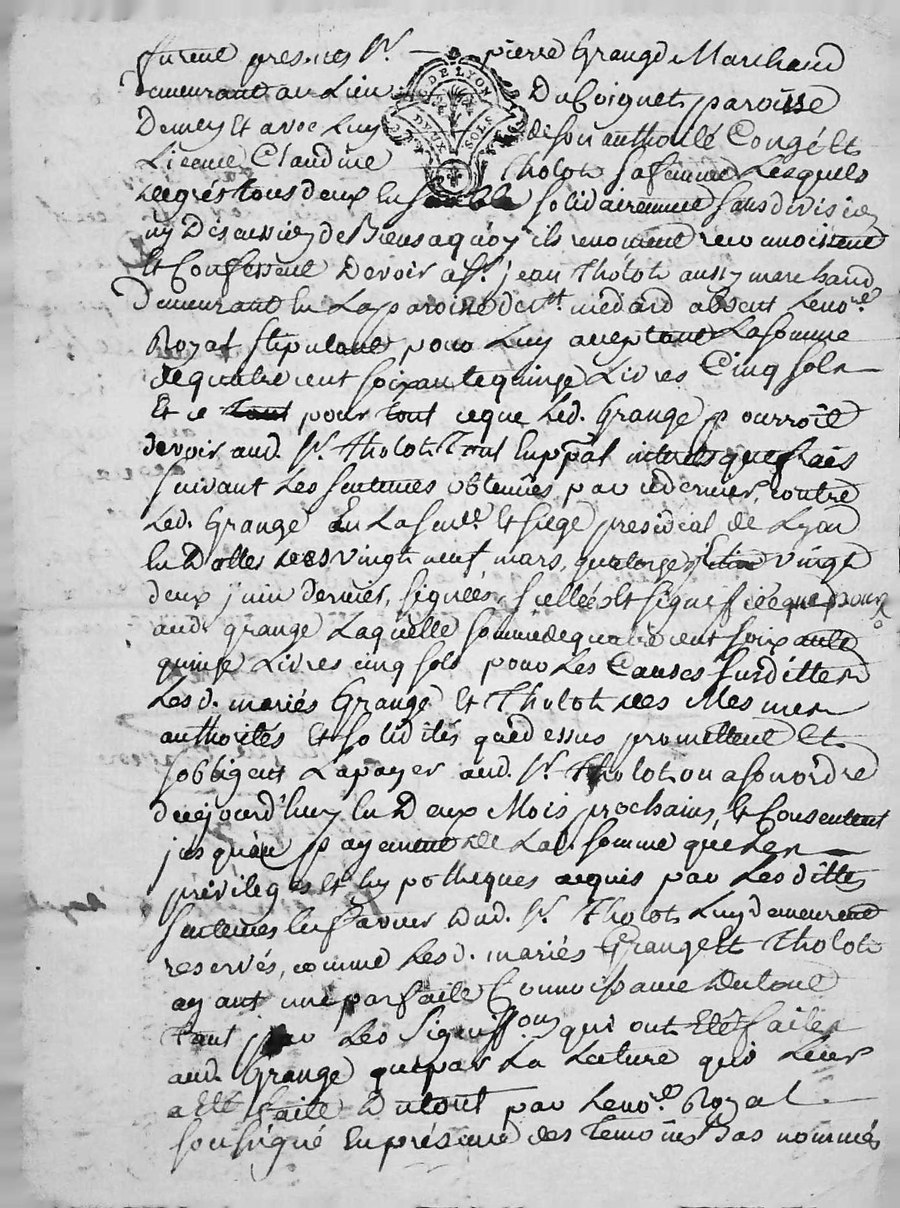 furent presents Sr. pierre Grange Marchand
demeurant au Lieu Du Coignet paroisse
De mey Et avec Luy de son authorité Congé Et
Licence Claudine Tholot sa femme Lesquels
de gré tous deux Ensemble solidairement sans division
ny Discussion de Biens a quoy ils renoncent reconnoissent
Et Confessent Devoir a Sr. jean Tholot aussy marchand
demeurant En La paroisse de st. médard absent Le nore.
Royal stipulant pour Luy acceptant La somme
de quatre cent soixante quinze Livres Cinq sols
Et ce pour tout ce que Led. Grange pourroit
devoir aud. Sr. Tholot Tant En ppal interests que frais
suivant Les sentences obtenües par ce dernier, contre
Led. Grange En La senée. Et siege presidial de Lyon
En Dattes des vingt neuf mars, quatorze et vingt
deux juin dernier, signées, scellées Et signifiées
aud. grange Laquelle somme de quatre cent soixante
quinze Livres cinq sols pour Les Causes susdittes
Les d. mariés Grange Et Tholot des Mesmes
authorités Et solidités que dessus promettent Et
s'obligent La payer aud. Sr. Tholot ou a son ordre
de cejourd'huy En Deux Mois prochains, Et Consentent
jusqu'au payement de Lad. somme que Les
privileges Et hypotheques acquis par Les dittes
sentences En faveur Dud. Sr. Tholot Luy demeurent
reservés, comme Les d. mariés Grange Et Tholot
ayant une parfaite Connoissance Du tout
tant par Les Signiffons qui ont Eté faites
aud. Grange que par La Lecture qui Leur
a Eté faite Du tout par Le nore. Royal
soussigné En présence des temoins Bas nommés
DE LYON
DEUX SOLS